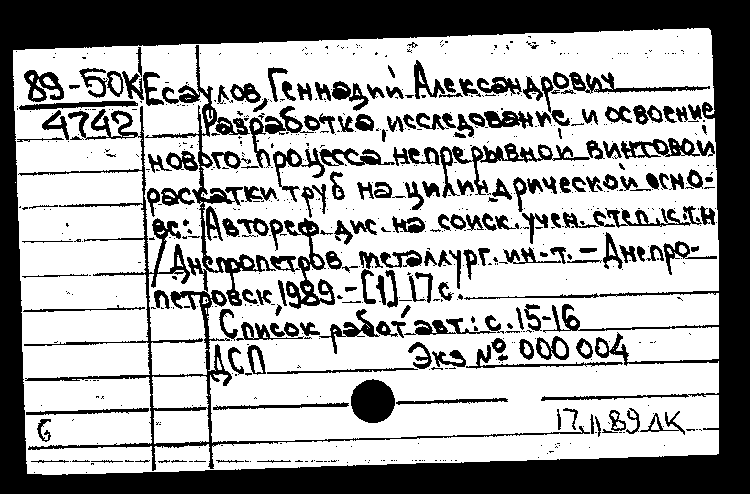 89-50К Есаулов, Геннадий Александрович
4742 Разработка, исследование и освоение
нового процесса непрерывной винтовой
раскатки труб на цилиндрической осно-
ве: Автореф. дис. на соиск. учен. степ. к.т.н
/Днепропетров. металлург. ин-т. - Днепро-
петровск, 1989. - [1] 17 с.
Список работ авт.: с. 15-16
ДСП Экз № 000 004
6 17.11.89 ЛК